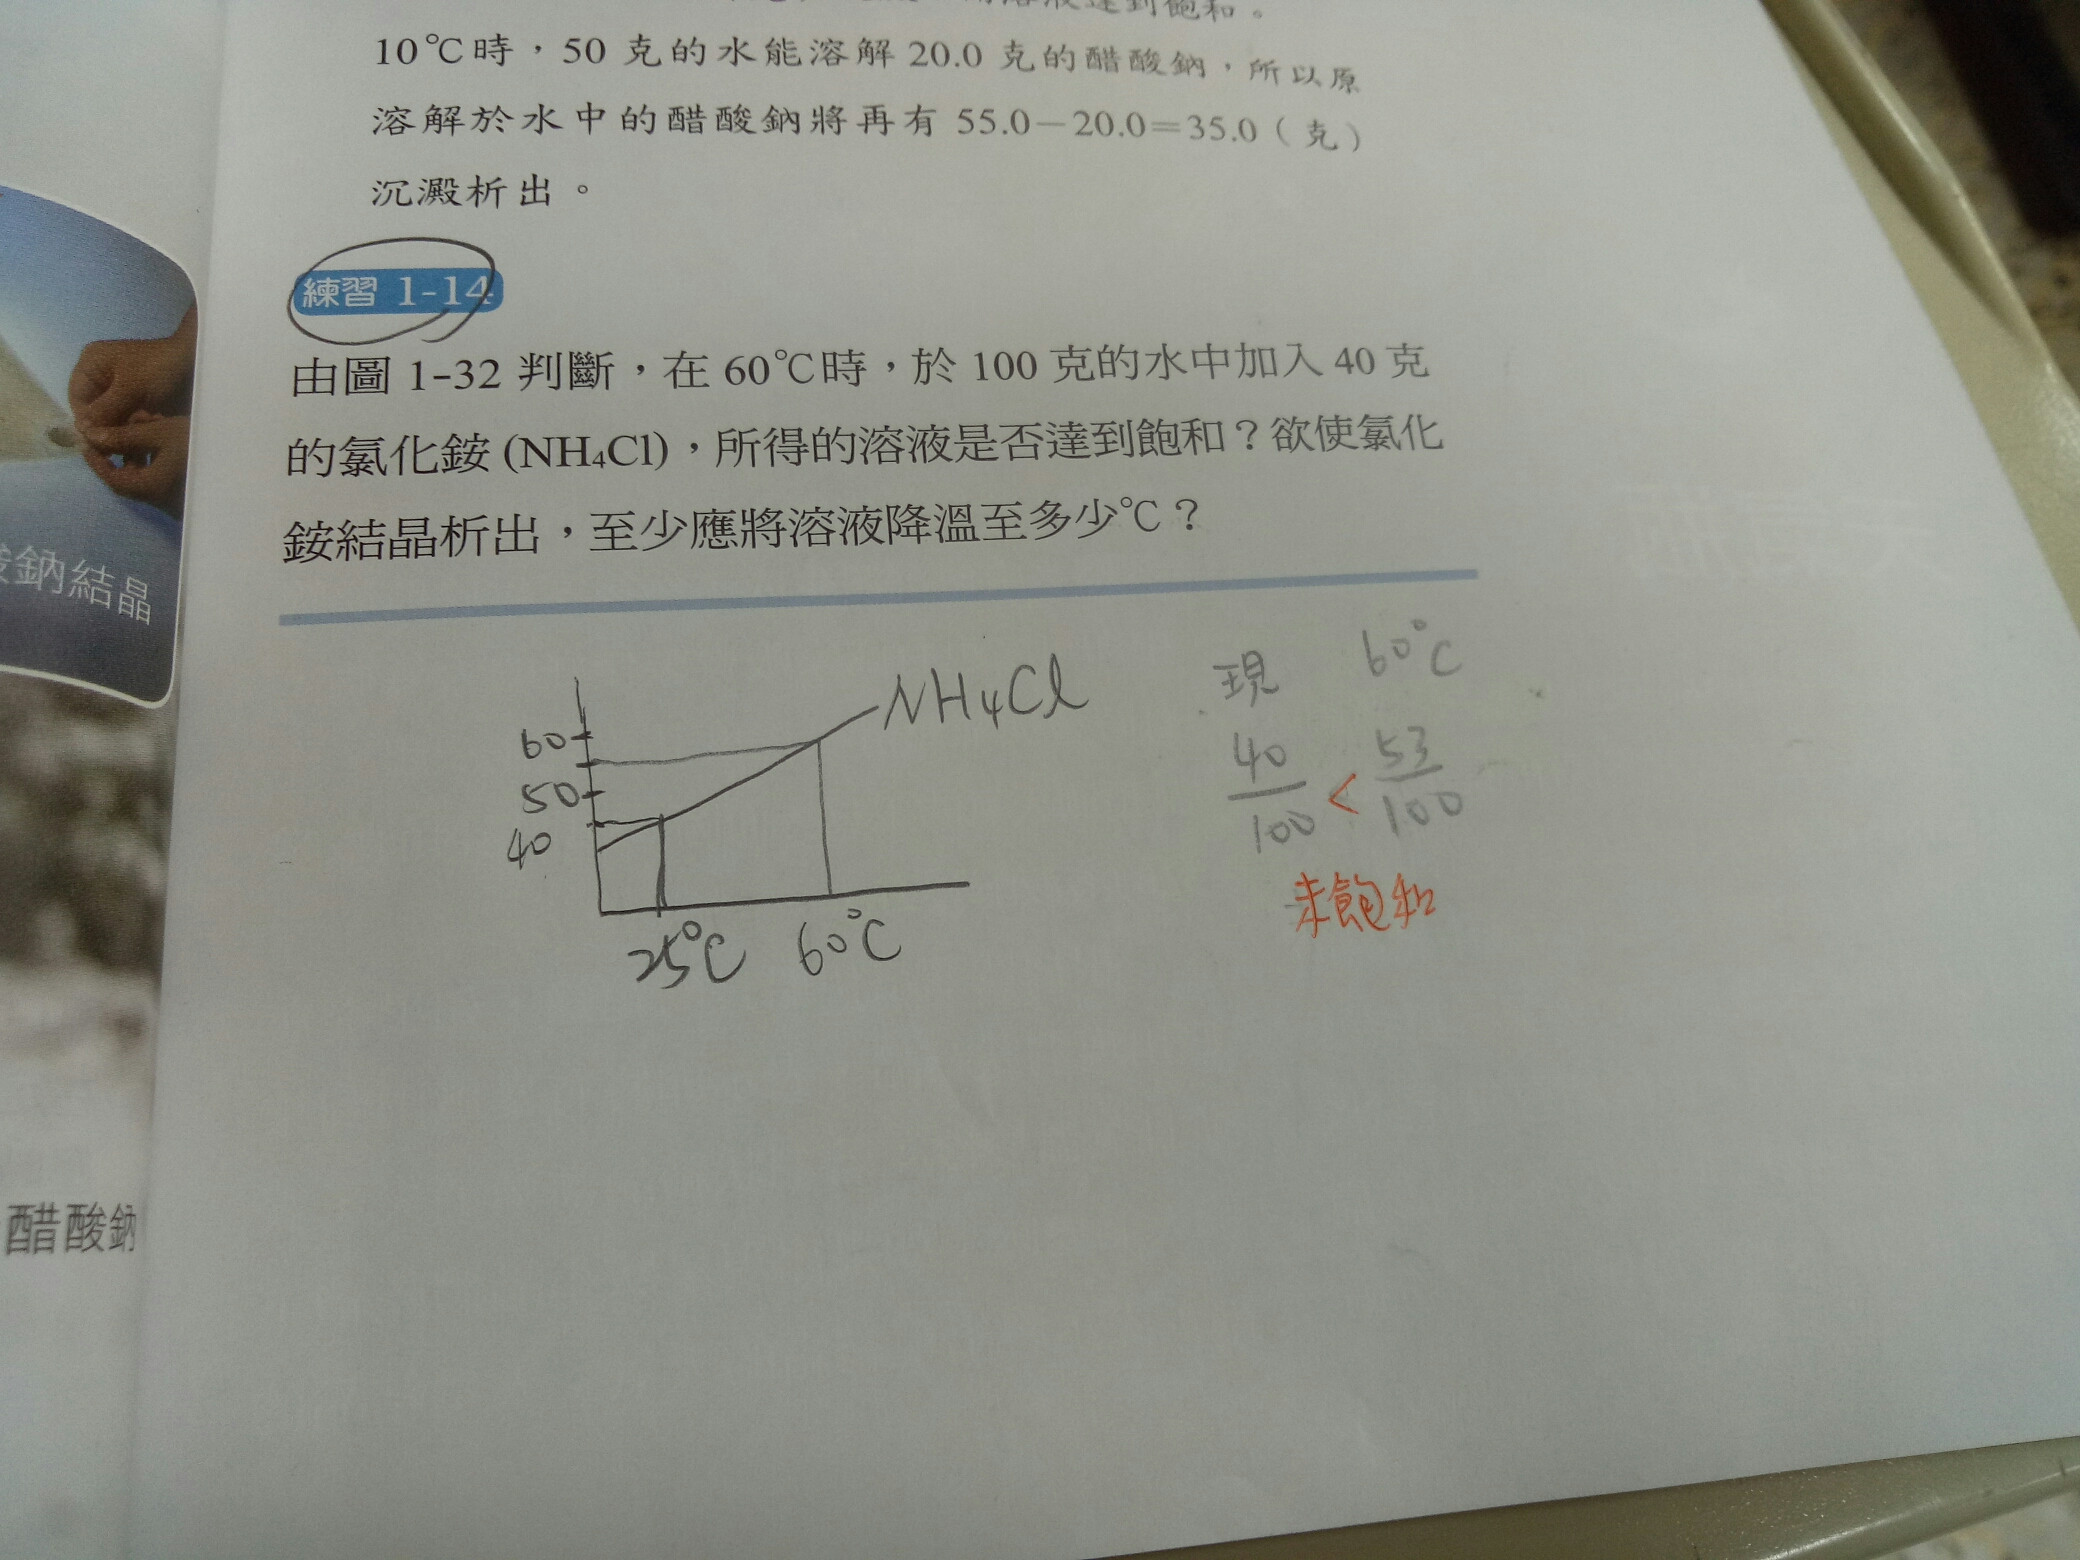 達到飽和。
10℃時，50 克的水能溶解 20.0 克的醋酸鈉，所以原
溶解於水中的醋酸鈉將再有 55.0－20.0＝35.0（克）
沉澱析出。
練習 1-14
由圖 1-32 判斷，在 60℃時，於 100 克的水中加入 40 克
的氯化銨 (NH₄Cl)，所得的溶液是否達到飽和？欲使氯化
銨結晶析出，至少應將溶液降溫至多少℃？
鈉結晶
NH₄Cl
60
50
40
25°C 60°C
現 60°C
40/100 < 53/100
未飽和
醋酸鈉